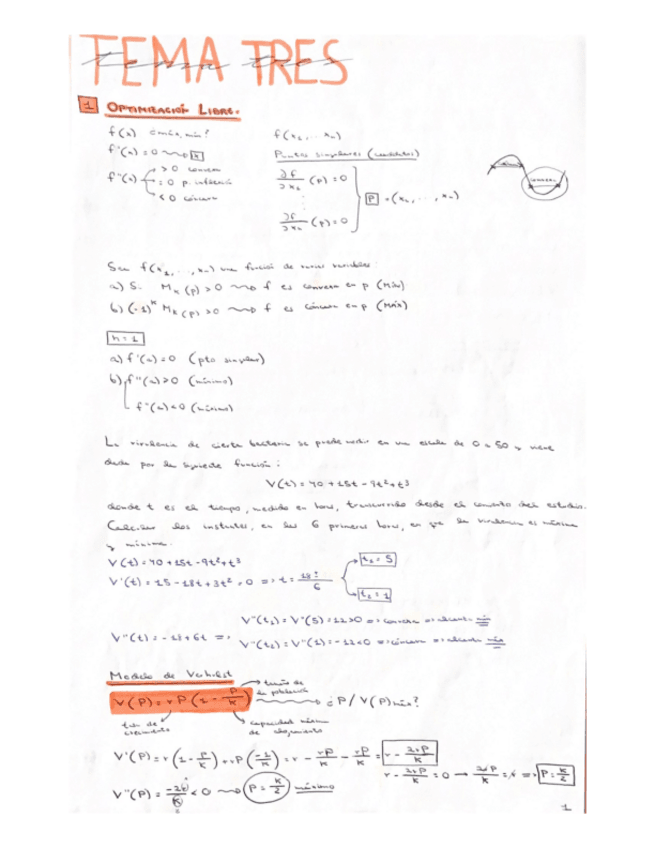 TEMA TRES
Tema tres
1 OPTIMIZACIÓN LIBRE.
f(x) ¿máx, mín?
f'(x) = 0 ⇝ x
f''(x) > 0 convexa
= 0 p. inflexión
< 0 cóncava
f(x₁, ... xₙ)
Puntos singulares (candidatos)
∂f/∂x₁ (p) = 0
⋮
∂f/∂xₙ (p) = 0
P = (x₁, ..., xₙ)
convexa
Sea f(x₁, ..., xₙ) una función de varias variables:
a) Si Mₖ(p) > 0 ⇝ f es convexa en p (Mín)
b) (-1)ᵏ Mₖ(p) > 0 ⇝ f es cóncava en p (MÁX)
n = 1
a) f'(a) = 0 (pto singular)
b) f''(a) > 0 (mínimo)
f''(a) < 0 (máximo)
La virulencia de cierta bacteria se puede medir en una escala de 0 a 50 y viene
dada por la siguiente función:
V(t) = 40 + 15t - 9t² + t³
donde t es el tiempo, medido en horas, transcurrido desde el comienzo del estudio.
Calcular los instantes, en las 6 primeras horas, en que la virulencia es máxima
y mínima.
V(t) = 40 + 15t - 9t² + t³
V'(t) = 15 - 18t + 3t² = 0 => t =
t₁ = 5
t₂ = 1
V''(t) = -18 + 6t =>
V''(t₁) = V''(5) = 12 > 0 => convexa => alcanza mín
V''(t₂) = V''(1) = -12 < 0 => cóncava => alcanza máx
Modelo de Verhulst
V(P) = rP(1 - P/K)
tamaño de
la población
¿P / V(P) máx?
tasa de
crecimiento
capacidad máxima
de alojamiento
V'(P) = r(1 - P/K) + rP(-1/K) = r - rP/K - rP/K = r - 2rP/K
r - 2rP/K = 0 → 2rP/K = r => P = K/2
V''(P) = -2r/K < 0 ⇝ P = K/2 máximo
1